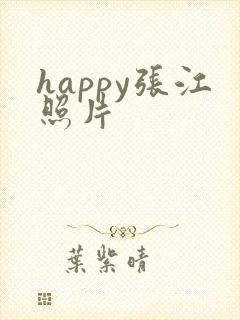 happy張江
照片
葉紫晴